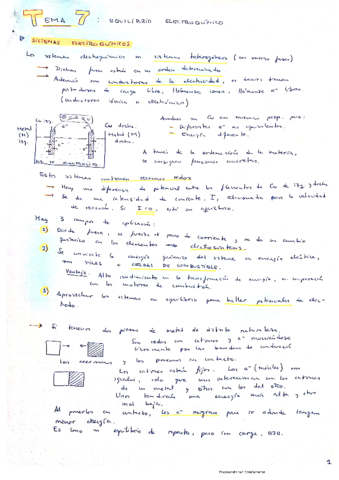 TEMA 7: EQUILIBRIO ELECTROQUÍMICO
SISTEMAS ELECTROQUÍMICOS
Los sistemas electroquímicos son sistemas heterogéneos (con varias fases)
→ Dichas fases están en un orden determinado
→ Además son conductores de la electricidad, es decir tienen
portadores de carga libre, llámense iones, llámense e- libres
(conductores iónicos o electrónicos)
Metal (M)
izq.
Cu dcha.
Metal (M)
dcha.
→ Diferentes e- no equivalentes.
→ Energía diferente.
A través de la ordenación de la materia,
se consiguen funciones concretas.
Estos sistemas contienen reacciones redox
→ Hay una diferencia de potencial entre los elementos de Cu de izq y dcha
→ Se da una intensidad de corriente, I, relacionada para la velocidad
de reacción. Si I=0, está en equilibrio.
Hay 3 campos de aplicación:
1) Desde fuera, se fuerza el paso de corriente y se da un cambio
químico en los elementos más electrosíntesis.
2) Se convierte la energía química del sistema en energía eléctrica,
son PILAS o CELDAS DE COMBUSTIBLE.
Ventaja: Alto rendimiento en la transformación de energía, en comparación
con los motores de combustión.
3) Aprovechar los sistemas en equilibrio para hallar potenciales de elec-
trodo.
→ Si tenemos dos piezas de metal de distinta naturaleza,
Son redes con cationes y e- moviéndose
libremente por las bandas de conducción
Los acercamos y los ponemos en contacto.
Los cationes están fijos. Los e- (móviles) son
iguales, solo que unos interaccionan con los cationes
de un metal y otros con los del otro.
Unos tendrán una energía más alta y otros
más baja.
Al ponerlos en contacto, los e- migran para ir donde tengan
menor energía.
Es como un equilibrio de reparto, pero con carga,
1